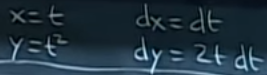 x=t dx=dt
y=t² dy=2t dt